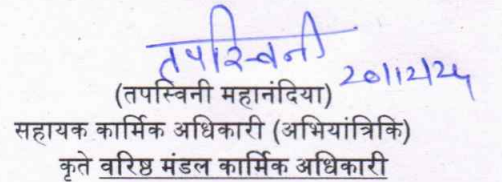 तपस्विनी
20/12/24
(तपस्विनी महानंदिया)
सहायक कार्मिक अधिकारी (अभियांत्रिकि)
कृते वरिष्ठ मंडल कार्मिक अधिकारी